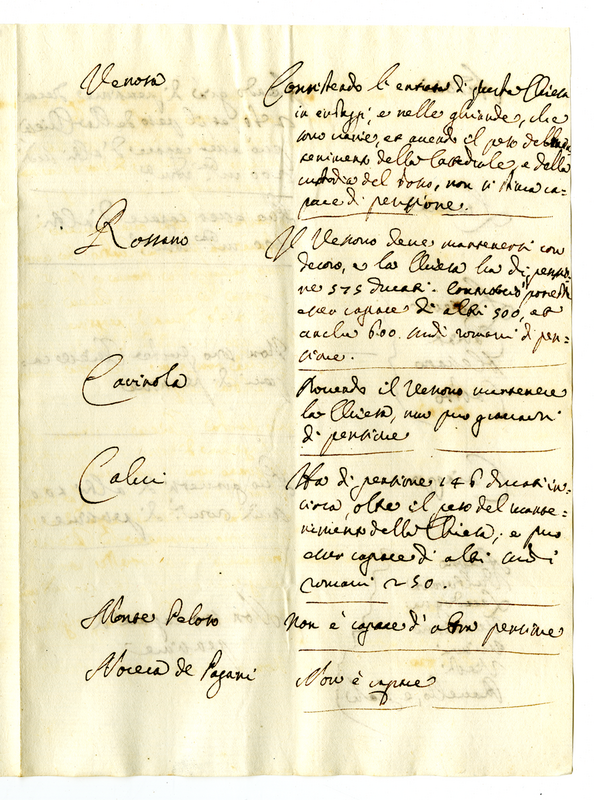 Venosa
Consistendo le entrate di questa Chiesa
in erbaggi, e nelle ghiande, che
sono varie, et avendo il peso del man=
tenimento della Cattedrale, e della
custodia del bosco, non si stima ca=
pace di pensione.
Rossano
Il Vescovo deve mantenersi con
decoro, e la Chiesa ha di pensio
ne 575 ducati. Con tutto ciò potrebbe
esser capace di altri 500, et
anche 600. scudi romani di pen=
sione.
Carinola
Dovendo il Vescovo mantenere
la Chiesa, non può gravarsi
di pensione
Calvi
Ha di pensione 146 ducati in
circa, oltre il peso del mante=
nimento della Chiesa, e può
esser capace di altri scudi
romani 250.
Monte Peloso
Non è capace d'altra pensione
Nocera de Pagani
Non è capace